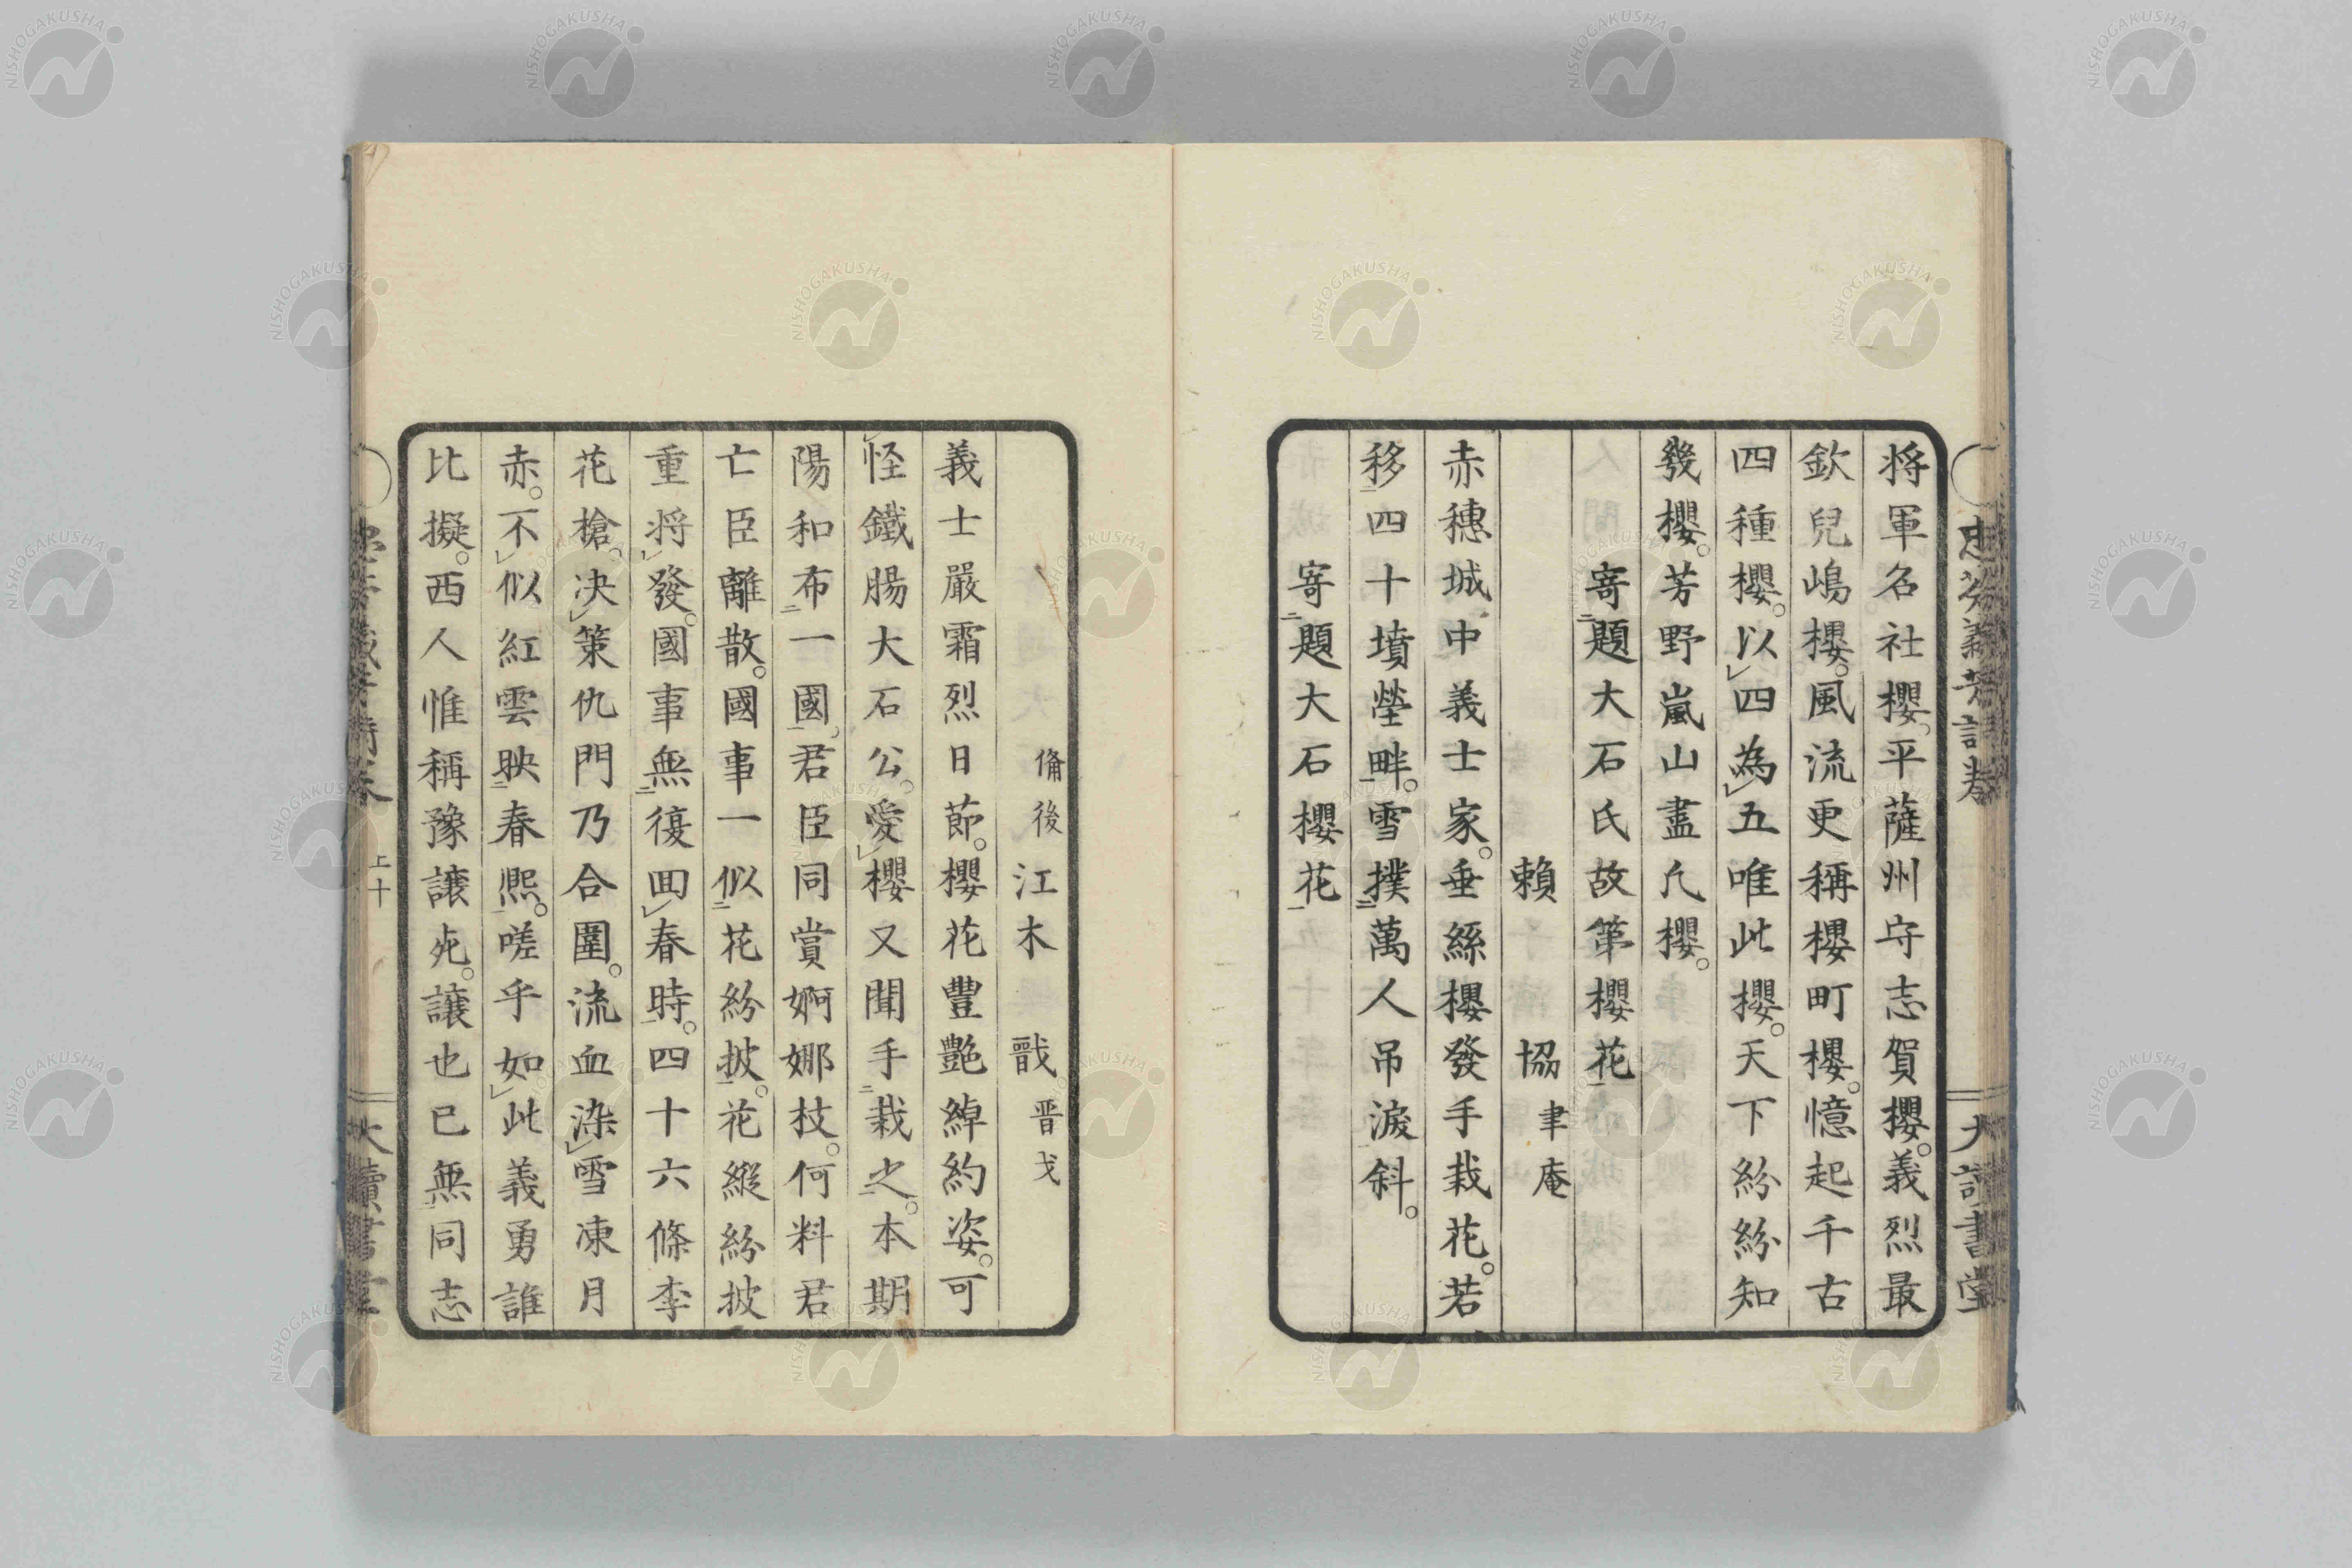 将軍名社櫻。平薩州守志賀櫻。義烈最
欽兒嶋櫻。風流更稱櫻町櫻。憶起千古
四種櫻。以四為五唯此櫻。天下紛紛知
幾櫻。芳野嵐山盡凡櫻。
寄題大石氏故第櫻花
賴協聿庵
赤穗城中義士家。垂絲櫻發手栽花。若
移四十墳塋畔。雪撲萬人吊淚斜。
寄題大石櫻花
備後江木戩晋戈
義士嚴霜烈日節。櫻花豐艷綽約姿。可
怪鐵腸大石公。愛櫻又聞手栽之。本期
陽和布一國。君臣同賞婀娜枝。何料君
亡臣離散。國事一似花紛披。花縱紛披
重将發。國事無復回春時。四十六條李
花槍。决策仇門乃合圍。流血染雪凍月
赤。不似紅雲映春熈。嗟乎如此義勇誰
比擬。西人惟稱豫讓死。讓也已無同志
上十
大讀書堂
NISHOGAKUSHA